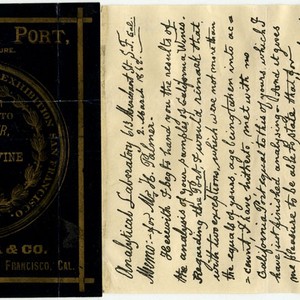 PORT,
EXHIBITION SAN FRANCISCO.
TO
& CO.
FRANCISCO, CAL.
Analytical Laboratory 613 Merchant St. S.F. Cal.
March
Memo: for Mr. H. Palmer.
Herewith I beg to hand you the results of
the analysis of your samples of California Wines.
Regarding the Port I would remark that
with two exceptions, which were not more than
the equals of yours, age being taken into ac=
=count, I have hitherto met with no
California Port equal to this of yours, which I
have just finished analysing. And it gives
me pleasure to be able to state that